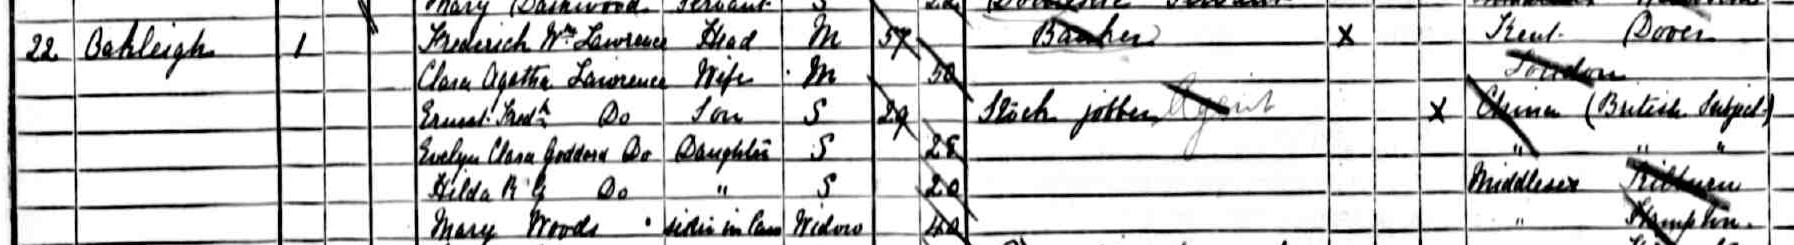 Mary Dashwood Servant S
22 Oakleigh 1 Frederick Wm Lawrence Head M 57 Banker X Kent Dover
Clara Agatha Lawrence Wife M 50 London
Ernest Fredk Do Son S 29 Stock jobber Agent X China (British Subject)
Evelyn Clara Goddard Do Daughter S 28 " " "
Hilda R G Do " S 20 Middlesex Kilburn
Mary Woods sister in law Widow 40 " Hampton